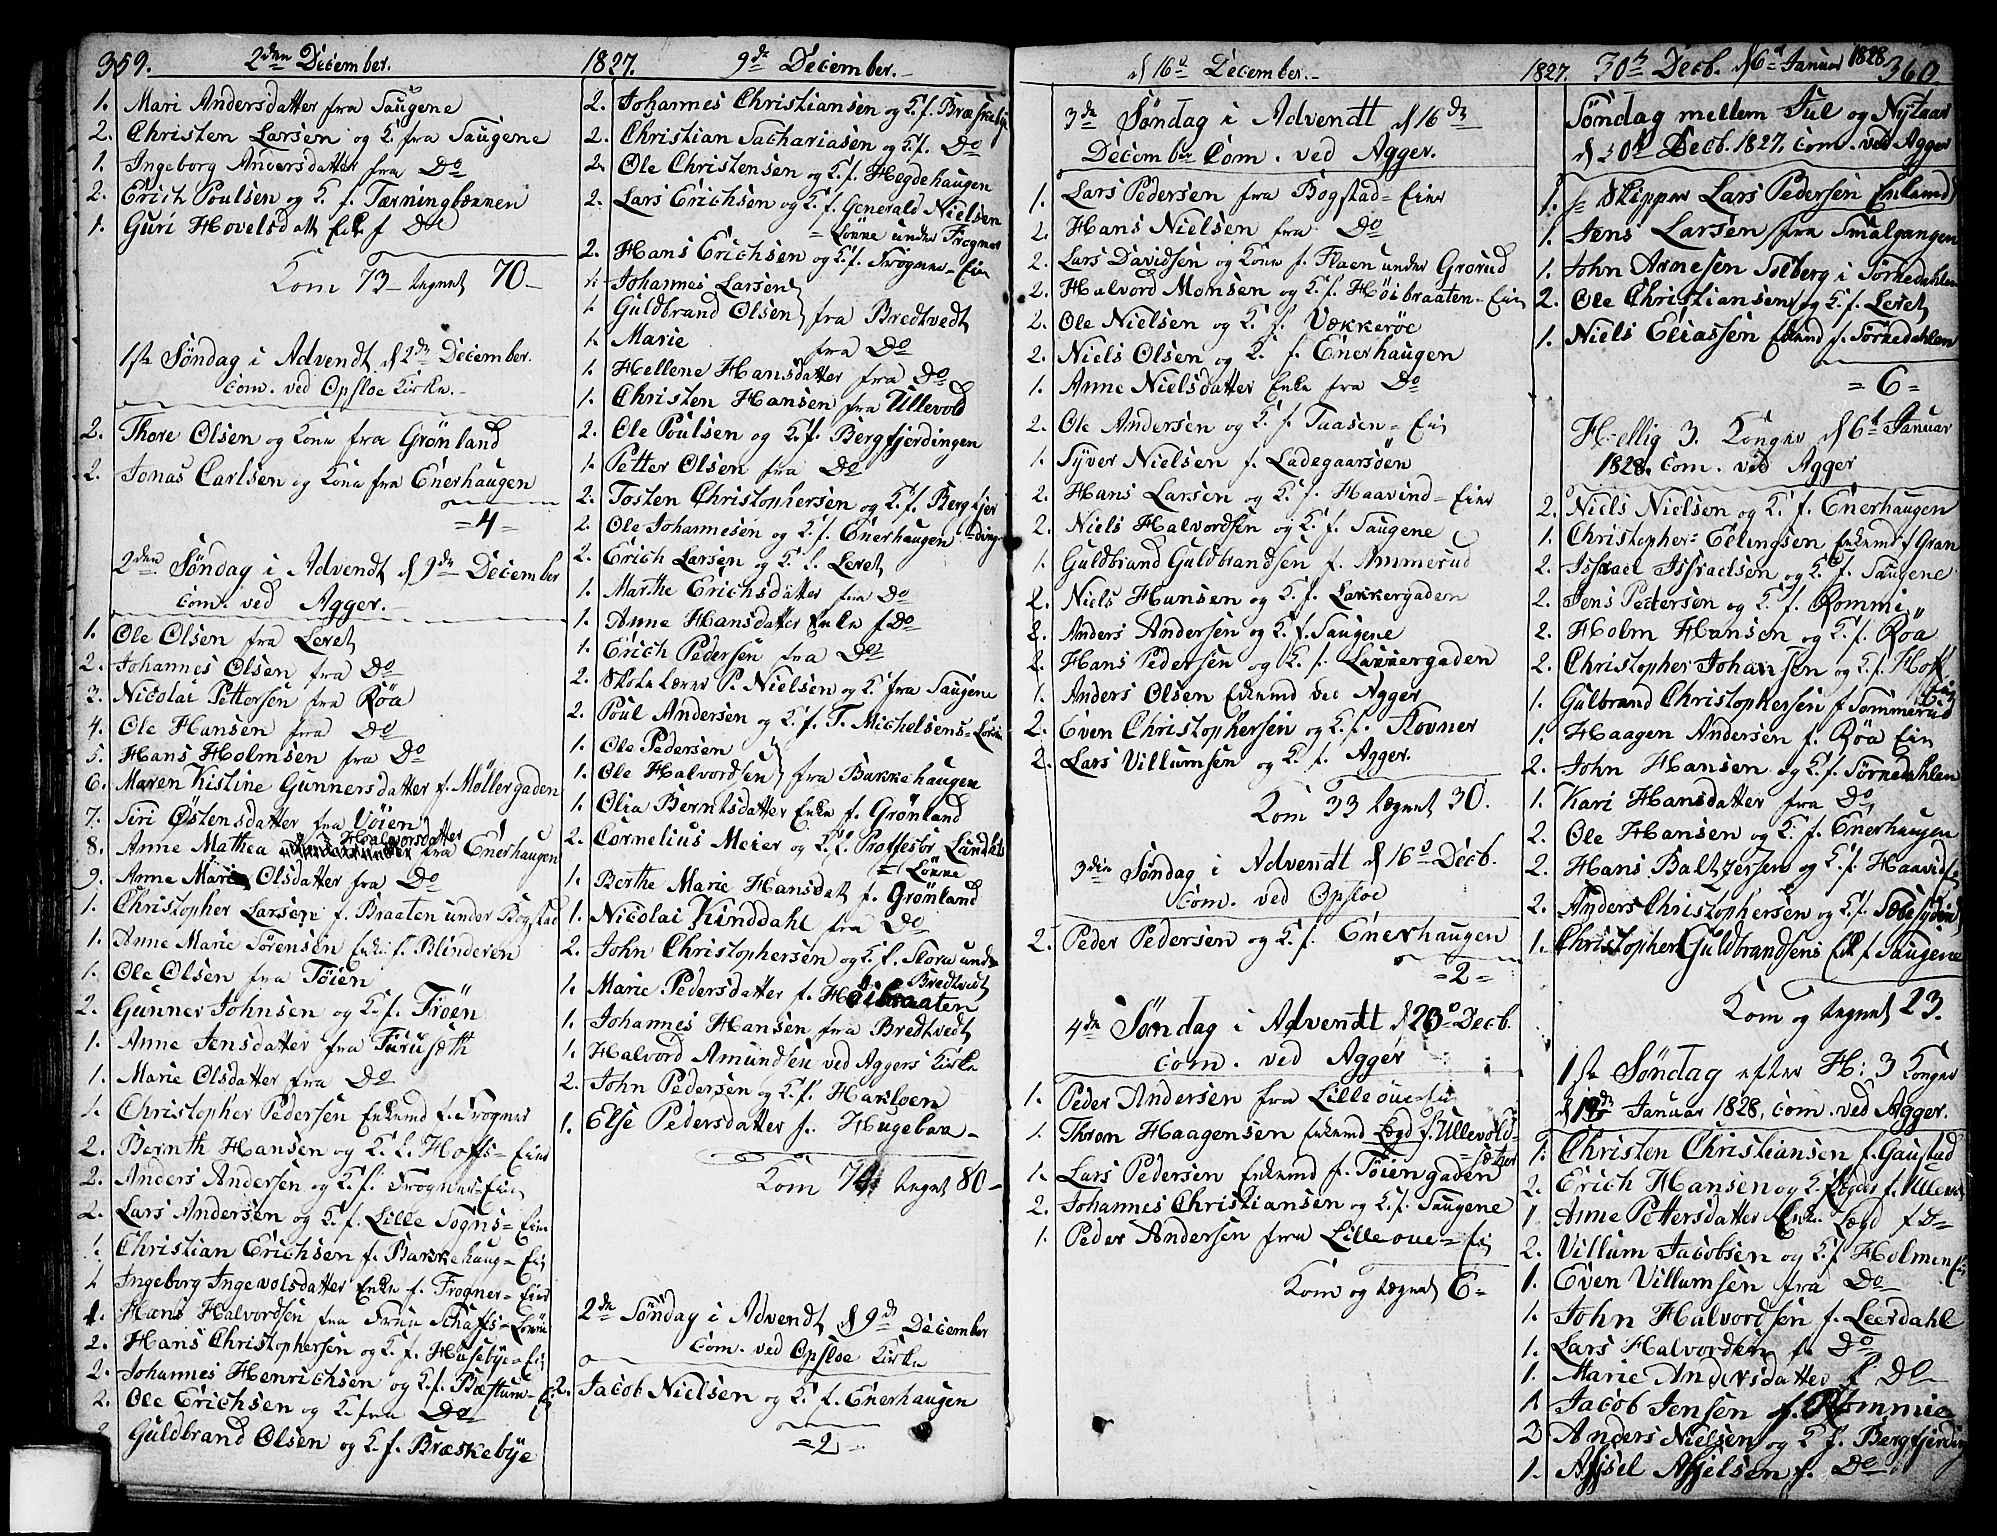 359. 2den December. 1827. 9de December.
1. Mari Andersdatter fra Saugene
2. Christen Larsen og K. fra Saugene
1. Ingeborg Andersdatter fra Do
2. Erich Poulsen og K. f. Tærningbønnen
1. Guri Hovelsdatt Enk f Do
Kom 73 tegnet 70
1ste Søndag i Advendt d 2den December.
Com. ved Opsloe Kirke.
2. Thore Olsen og Kone fra Grønland
2. Jonas Carlsen og Kone fra Enerhaugen
=4=
2den Søndag i Advendt d 9de December
Com. ved Agger.
1. Ole Olsen fra Leret
2. Johannes Olsen fra Do
3. Nicolai Pettersen fra Røa
4. Ole Hansen fra Do
5. Hans Holmsen fra Do
6. Maren Kistine Gunnersdatter f. Møllergaden
7. Siri Østensdatter fra Vøien
8. Anne Mathea Halvorsdatter fra Enerhaugen
9. Anne Marie Olsdatter fra Do
1. Christopher Larsen f. Braaten under Bogstad
1. Anne Marie Sørensen Enke f. Blinderen
1. Ole Olsen fra Tøien
2. Gunner Johnsen og K. f. Frøen
1. Anne Jensdatter fra Furuseth
1. Marie Olsdatter fra Do
1. Christopher Pedersen Enkemd f. Frogner
2. Bernth Hansen og K. f. Hoffs-Eier
2. Anders Andersen og K. f. Frogner-Eie
2. Lars Andersen og K. f. Lille Sogns-Eie
1. Christian Erichsen f. Bakkehaug-Eie
1 Ingeborg Ingevolsdatter Enke f. Frogner-Eier
1. Hans Halvordsen fra Frue Schafts-Løkke
2. Hans Christophersen og K. f. Husebye-Eie
2. Johannes Henrichsen og K. f. Bæstum-Eie
2. Ole Erichsen og K. fra Do
2 Guldbrand Olsen og K. f. Bræskebye
2. Johannes Christiansen og K. f. Bræskebye
2. Christian Sachariasen og K f. Do
2. Ole Christensen og K. f. Hegdehaugen
2. Lars Erichsen og K. f. Generald Nielsen
=Lønne under Frogner
2. Hans Erichsen og K. f. Frogner-Eie
1. Johannes Larsen
1. Guldbrand Olsen fra Bredtvedt
1. Marie fra Do
1. Hellene Hansdatter fra Do
1. Christen Hansen fra Ullevold
2. Ole Poulsen og K. f. Bergfjerdingen
1. Petter Olsen fra Do
2. Tosten Christophersen og K. f. Bergfjer
2. Ole Johannesen og K. f. Enerhaugen =ding
2. Erich Larsen og K. f. Leret
1. Marthe Erichsdatter fra Do
1. Anne Hansdatter Enke f Do
1. Erich Pedersen fra Do
2. Skolelærer P. Nielsen og K. fra Saugene
2. Poul Andersen og K. f. T. Michelsens-Løkke
1. Ole Pedersen
1. Ole Halvordsen fra Bakkehaugen
1. Olia Berntsdatter Enke f. Grønland
2. Cornelius Meier og K. f. Proffesor Lundts
= Lønne
1. Berthe Marie Hansdatt f. Grønland
1. Nicolai Kinddahl fra Do
2. John Christophersen og K. f. Flora under
Bredtvedt
1. Marie Pedersdatter f. Høibraaten
1. Johannes Hansen fra Bredtvedt
1. Halvord Amundsen ved Aggers Kirke
2. John Pedersen og K. f. Hasloen
1. Else Pedersdatter f. Hugebaa
Kom 74 tegnet 80
2de Søndag i Advendt d 9de December
Com. ved Opsloe Kirke
2. Jacob Nielsen og K. f. Enerhaugen
=2=
d 16d December. 1827. 30te Decb. d 6d Januar 1828 360
3de Søndag i Advendt d 16de
December Com. ved Agger.
1. Lars Pedersen fra Bogstad-Eier
2. Hans Nielsen fra Do
2. Lars Davidsen og Kone f. Flaen under Grorud
2. Halvord Monsen og K. f. Høibraaten-Eie
2. Ole Nielsen og K. f. Vækkerøe
2. Niels Olsen og K. f. Enerhaugen
1. Anne Nielsdatter Enke fra Do
2. Ole Andersen og K. f. Tuasen-Eie
1. Syver Nielsen f. Ladegaarsøen
2. Hans Larsen og K. f. Haavind-Eier
2. Niels Halvordsen og K. f. Saugene
1. Guldbrand Guldbrandsen f. Ammerud
2. Niels Hansen og K. f. Lakkergaden
2. Anders Andersen og K. f. Saugene
2. Hans Pedersen og K. f. Lakkergaden
1. Anders Olsen Enkemd ved Agger
2. Even Christophersen og K. f. Rovner
2. Lars Villumsen og K. f. Agger.
Kom 33 tegnet 30.
3die Søndag i Advendt d 16d Decb.
Com. ved Opsloe
2. Peder Pedersen og K. f. Enerhaugen
=2=
4de Søndag i Advendt d 23d Decb.
Com. ved Agger
1. Peder Andersen fra Lilleoue-Eie
1. Thron Haagensen Enkemd Legd f. Ullevold-
=sæter
1. Lars Pedersen Enkemd f. Tøiengaden
2. Johannes Christiansen og K. f. Saugene
1. Peder Andersen fra Lilleoue-Eie
Kom og tegnet 6-
Søndag mellem Jul og Nytaar
d 30te Decb. 1827. Com. ved Agger
1. Skipper Lars Pedersen Enkemd
1. Jens Larsen fra Smalgangen
1. John Arnesen Solberg i Sørkedahlen
2. Ole Christiansen og K. f. Leret
1. Niels Eliassen Enkemd f. Sørkedahlen
=6=
Hellig 3. Konger d 6d Januar
1828. Com. ved Agger
2. Niels Nielsen og K. f. Enerhaugen
1. Christopher Ellingsen Enkemd f Gran
2. Issrael Issraelsen og K. f. Saugene
2. Jens Pedersen og K. f. Rommi
2. Holm Hansen og K. f. Røa
2. Christopher Johansen og K. f. Hoff
1. Gulbrand Christophersen f Sommerud
1. Haagen Andersen f. Røa Eie
2. John Hansen og K. f. Sørkedahlen
1. Kari Hansdatter fra Do
2. Ole Hansen og K. f. Enerhaugen
2. Hans Baltzersen og K. f. Haavid
2. Anders Christophersen og K. f.
1. Christopher Guldbrandsens Ek f. Saugene
Kom og tegnet 23.
1ste Søndag efter H: 3 Konger
d 13de Januar 1828, Com. ved Agger.
1. Christen Christiansen f. Gaustad
2. Erich Hansen og K. f. Ullevold
1 Anne Pettersdatter Enke Legd f D
2. Villum Jacobsen og K. f Holmen Eie
1. Even Villumsen fra Do
1. John Halvordsen f. Leerdahl
1. Lars Halvordsen f. Do
1. Marie Andersdatter f. Do
1 Jacob Jensen f. Rommie
2 Anders Nielsen og K f. Bergfjerding
1. Assel Asselsen f. Do